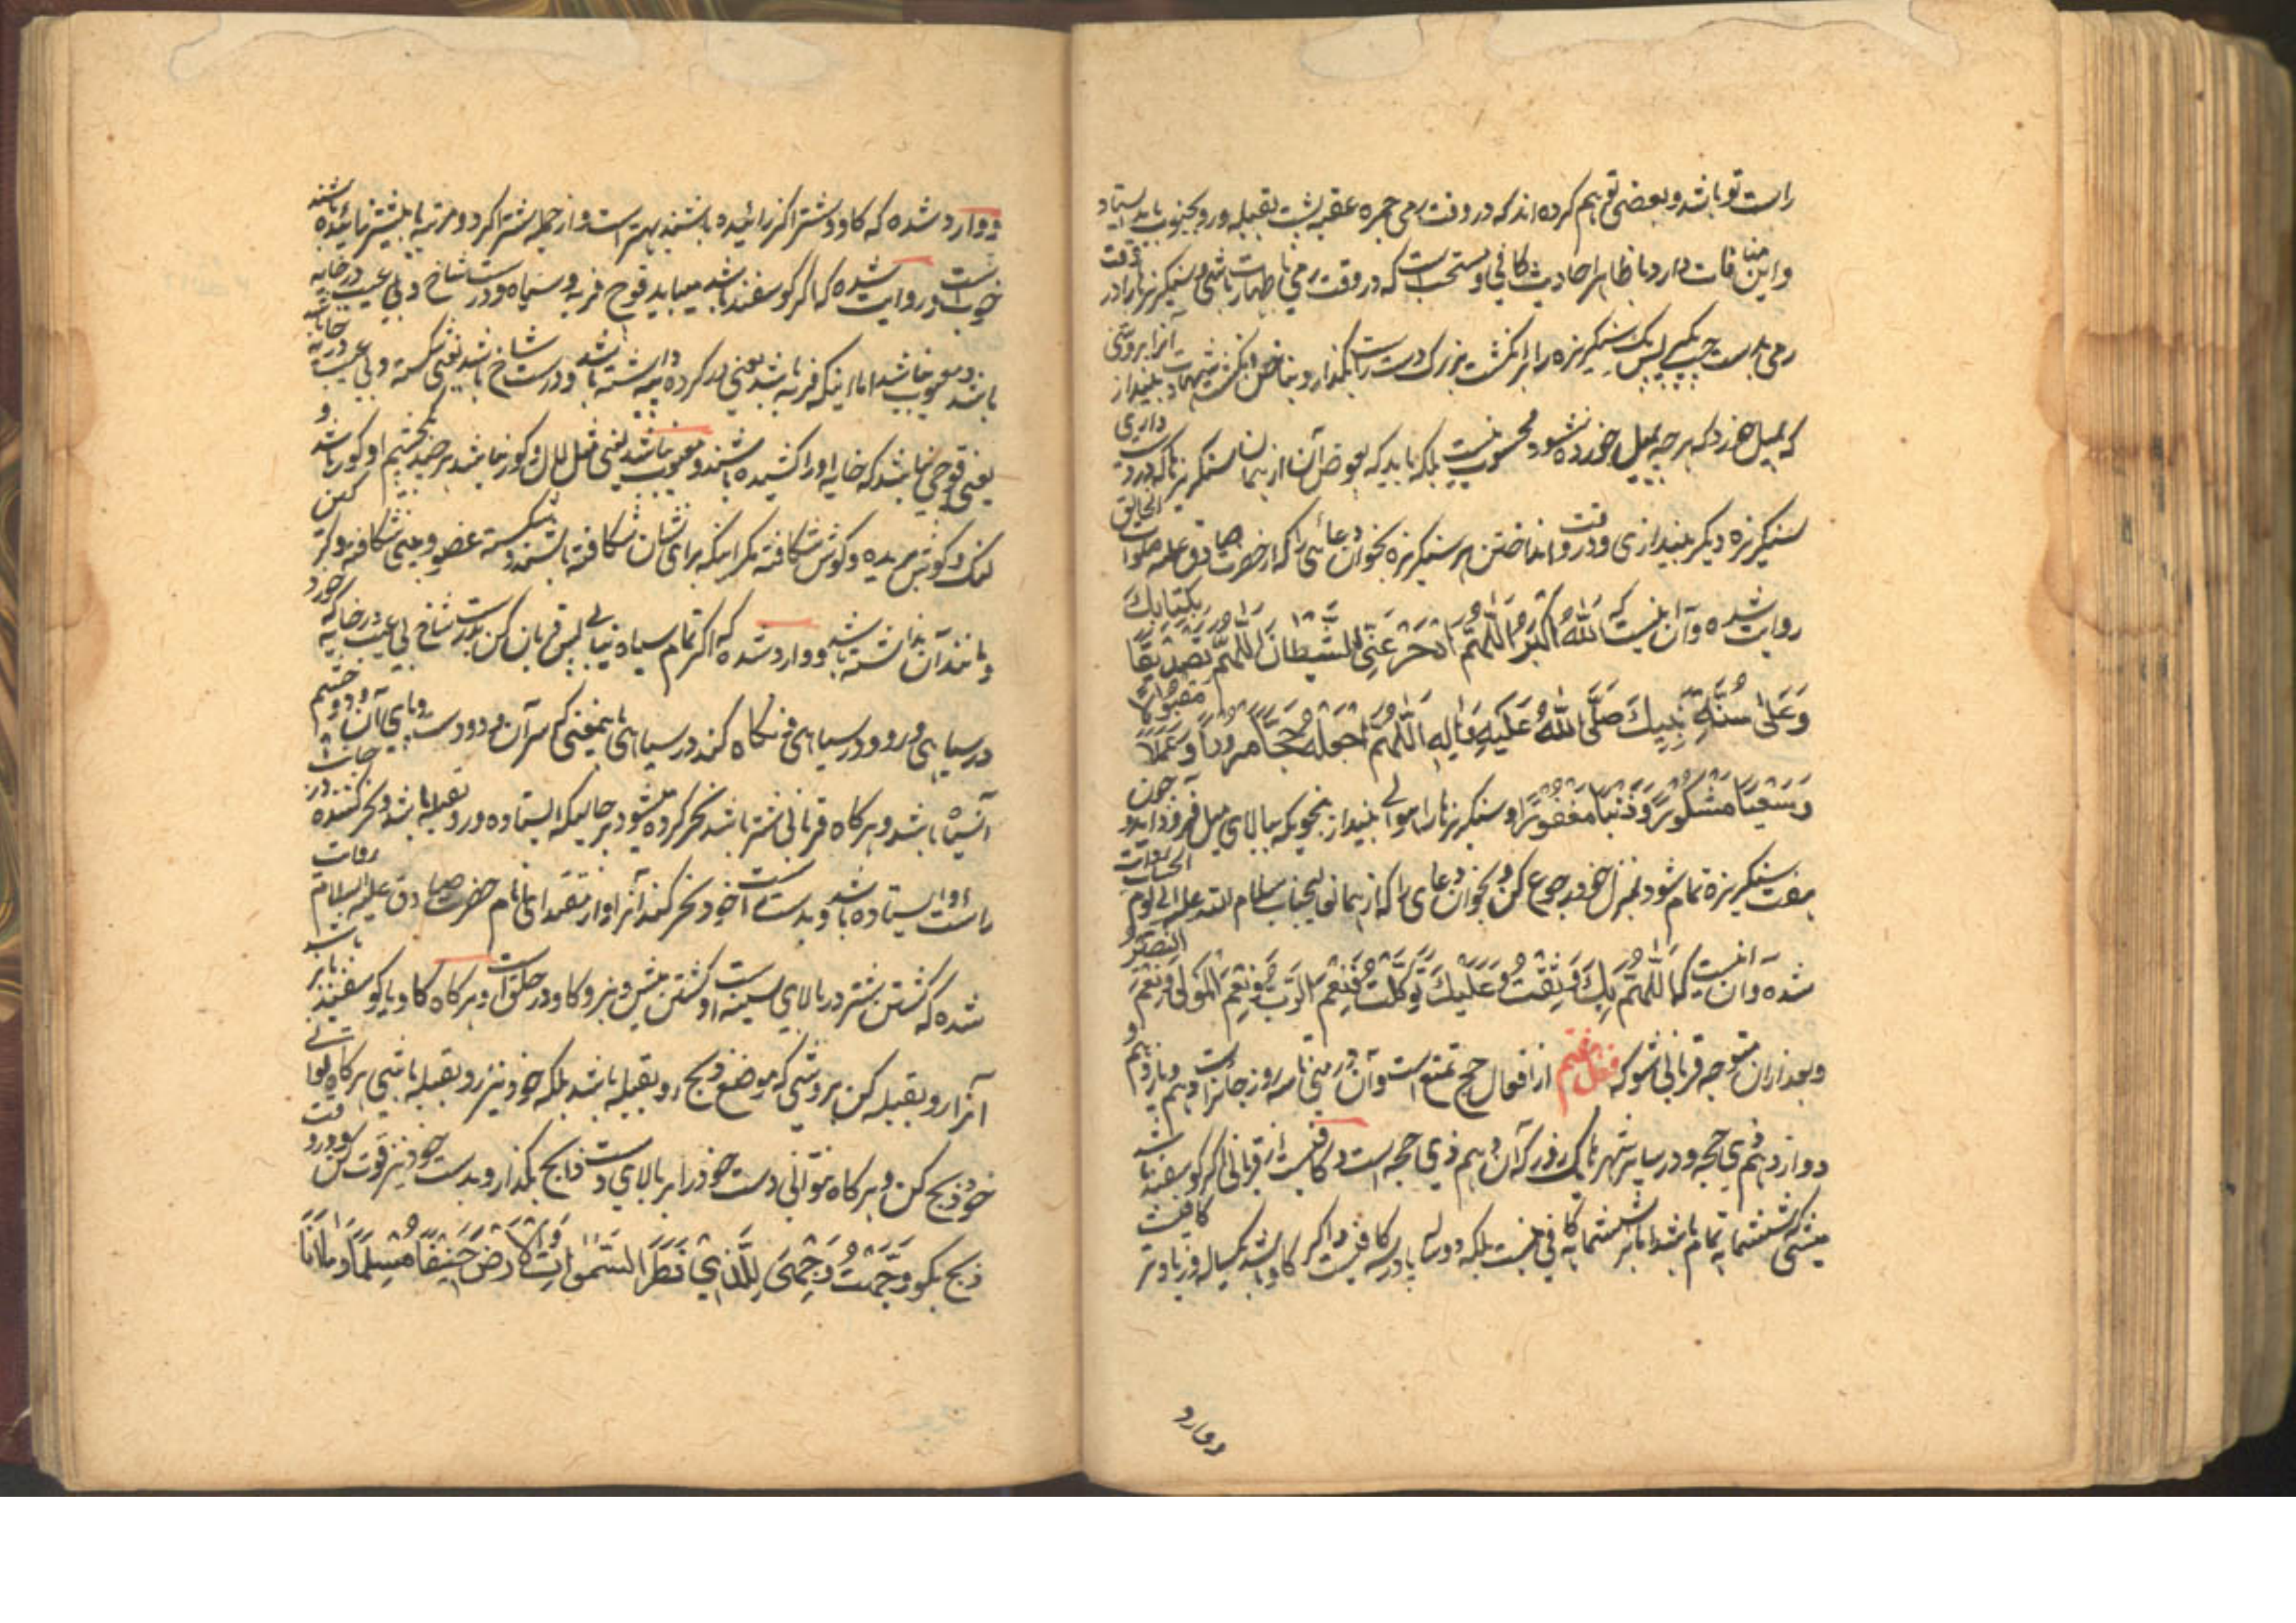 راست تو باشد و بعضی توهم کرده‌اند که در وقت رمی جمره عقبه پشت بقبله و رو بجنوب باید ایستاد
و این منافات دارد با ظاهر احادیث کافی و مستحب است که در وقت رمی با طهارت باشی و سنگریزها را در وقت
رمی بدست چپ بگیر پس یک سنگریزه را بر انگشت بزرگ دست راست بگذار و بناخن انگشت شهادت آنرا بروشی بینداز
که بمیل خورد که هر چه بمیل خورده نشود محسوب نیست بلکه باید که بعوض آن از همان سنگریزها که در دست داری
سنگریزه دیگر بیندازی و در وقت انداختن هر سنگریزه بخوان دعائی را که از حضرت صادق علیه صلوات الخالق
روایت شده و آن اینست که اَللّٰهُ اَکْبَرُ اَللّٰهُمَّ ادْحَرْ عَنِّی الشَّیْطَانَ اَللّٰهُمَّ تَصْدِیْقًا بِکِتَابِکَ
وَعَلٰی سُنَّةِ نَبِیِّکَ صَلَّی اللّٰهُ عَلَیْهِ وَاٰلِهِ اَللّٰهُمَّ اجْعَلْهُ حَجًّا مَبْرُوْرًا وَعَمَلًا مَقْبُوْلًا
وَسَعْیًا مَشْکُوْرًا وَذَنْبًا مَغْفُوْرًا و سنگریزها را موالی بینداز بنحویکه ببالای میل فرود آید و چون
هفت سنگریزه تمام شود بمنزل خود رجوع کن و بخوان دعای را که از همان عالیجناب سلام الله علیه الی یوم الحساب روایت
شده و آن اینست که اَللّٰهُمَّ بِکَ وَثِقْتُ وَعَلَیْکَ تَوَکَّلْتُ فَنِعْمَ الرَّبُّ وَنِعْمَ الْمَوْلٰی وَنِعْمَ النَّصِیْرُ
و بعد از آن متوجه قربانی شو که فعل هفتم از افعال حج تمتع است و آن در منی تا سه روز جائز است دهم و یازدهم و
دوازدهم ذی حجه و در سایر شهرها یک روز که آن دهم ذی حجه است و کافیست از قربانی اگر گوسفند باشد
میشی که ششماهه تمام باشد اما بز ششماهه کافی نیست بلکه دوساله یا در سه کافیست و اگر گاو باشد یکساله و زیادتر کافیست
و وارد
و وارد شده که گاو و شتر اگر زائیده باشند بهتر است و از جمله شتر اگر دو مرتبه یا بیشتر زائیده باشند
خوب است و روایت شده که اگر گوسفند باشد میباید قوچ فربه و سیاه و درست شاخ و بی عیب در خایه
باشد و معیوب نباشد اما اینکه فربه باشد یعنی در گرده پیه داشته باشد و درست شاخ باشد یعنی شکسته و بی عیب در خایه باشد
یعنی قوچی نباشد که خایه او را کشیده باشند و معیوب نباشد یعنی مثل لال و کور نباشد هر چند یکچشم او کور باشد و
لنگ و گوش بریده و گوش شکافته مگر اینکه برای نشان شکافته باشند و شکسته عضو و بینی شکافته و گر کهن
و مانند آن نداشته باشد و وارد شده که اگر تمام سیاه نیابی پس قربان کن درست شاخ بی عیب در خایه که خورد
در سیاهی و رود در سیاهی و نگاه کند در سیاهی باینمعنی که سر آن و دو دست و پای آن و دو چشم
آن سیاه باشد و هرگاه قربانی شتر باشد نحر کرده میشود بر حالیکه ایستاده و رو بقبله باشد و نحر کننده در جانب
راست او ایستاده باشد و بدست راست خود نحر کند آنرا و از مقتدای انام حضرت صادق علیه السلام روایت
شده که کشتن شتر در بالای سینه اوست و کشتن میش و بز و گاو در حلق است و هرگاه گاو یا گوسفند یا بز باشد
آنرا رو بقبله کن بروشی که موضع ذبح رو بقبله باشد بلکه خود نیز رو بقبله باشی و هرگاه توانی
خود ذبح کن و هرگاه نتوانی دست خود را بر بالای دست ذابح بگذار و بدست خود نیز قوت کن و در وقت
ذبح بگو وَجَّهْتُ وَجْهِیَ لِلَّذِیْ فَطَرَ السَّمٰوَاتِ وَالْاَرْضَ حَنِیْفًا مُسْلِمًا وَمَا اَنَا